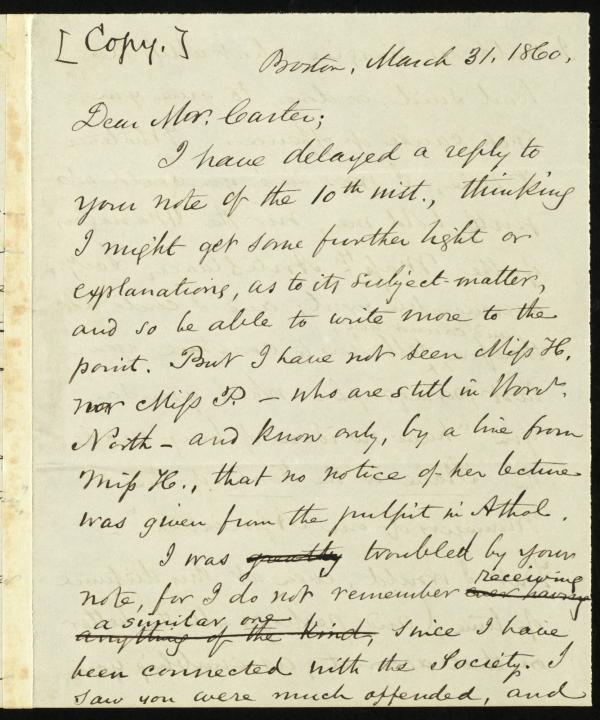 [Copy.]
Boston, March 31, 1860.
Dear Mr. Carter;
I have delayed a reply to
your note of the 10th inst., thinking
I might get some further light or
explanations, as to its subject-matter,
and so be able to write more to the
point. But I have not seen Miss H.
nor Miss P. — who are still in Worc.
North — and know only, by a line from
Miss H., that no notice of her lecture
was given from the pulpit in Athol.
I was greatly troubled by your
receiving
note, for I do not remember ever having
a similar one
anything of the kind, since I have
been connected with the Society. I
saw you were much offended, and